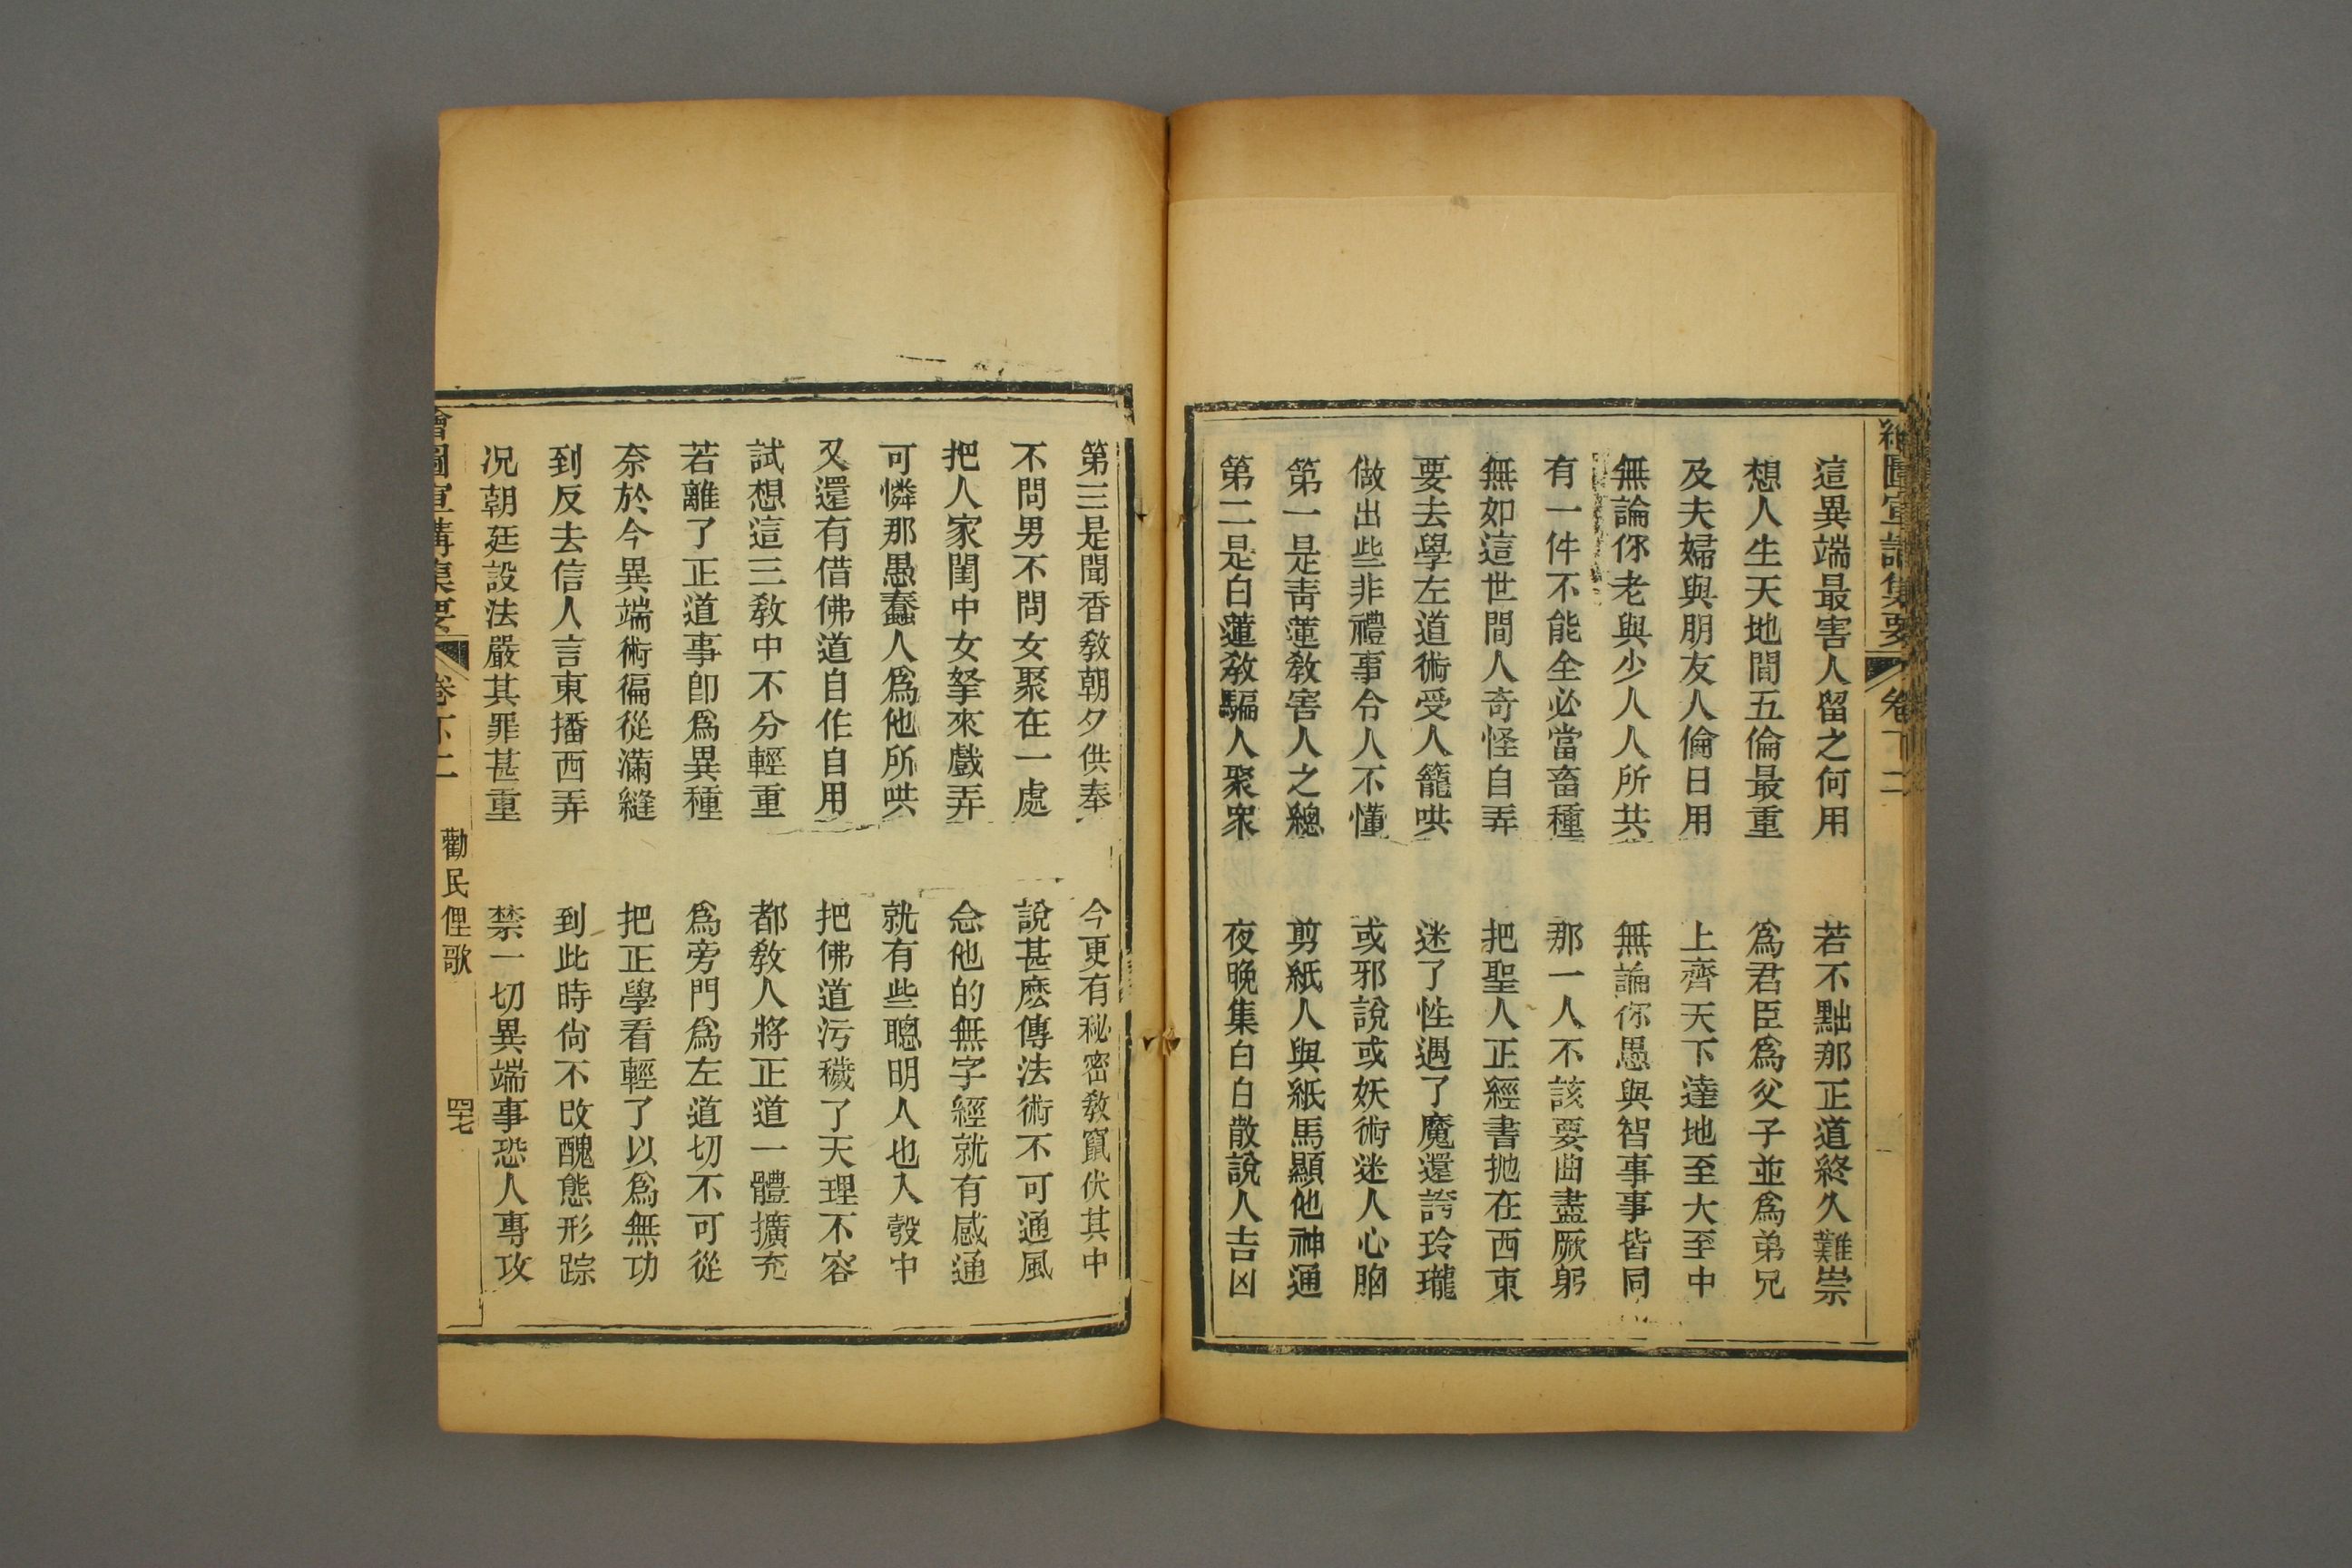 繪圖宣講集要 卷下二
這異端最害人留之何用 若不黜那正道終久難崇
想人生天地間五倫最重 爲君臣爲父子並爲弟兄
及夫婦與朋友人倫日用 上齊天下達地至大至中
無論你老與少人人所共 無論你愚與智事事皆同
有一件不能全必當畜種 那一人不該要曲盡厥躬
無如這世間人奇怪自弄 把聖人正經書抛在西東
要去學左道術受人籠哄 迷了性遇了魔還誇玲瓏
做出些非禮事令人不懂 或邪說或妖術迷人心胸
第一是靑蓮敎害人之總 剪紙人與紙馬顯他神通
第二是白蓮敎騙人聚衆 夜晚集白白散說人吉凶
第三是聞香敎朝夕供奉 今更有秘密敎竄伏其中
不問男不問女聚在一處 說甚麽傳法術不可通風
把人家閨中女拏來戲弄 念他的無字經就有感通
可憐那愚蠢人爲他所哄 就有些聰明人也入彀中
又還有借佛道自作自用 把佛道污穢了天理不容
試想這三敎中不分輕重 都敎人將正道一體擴充
若離了正道事卽爲異種 爲旁門爲左道切不可從
奈於今異端術徧從滿縫 把正學看輕了以爲無功
到反去信人言東播西弄 到此時尙不改醜態形踪
况朝廷設法嚴其罪甚重 禁一切異端事恐人專攻
繪圖宣講集要 卷下二 勸民俚歌 四七